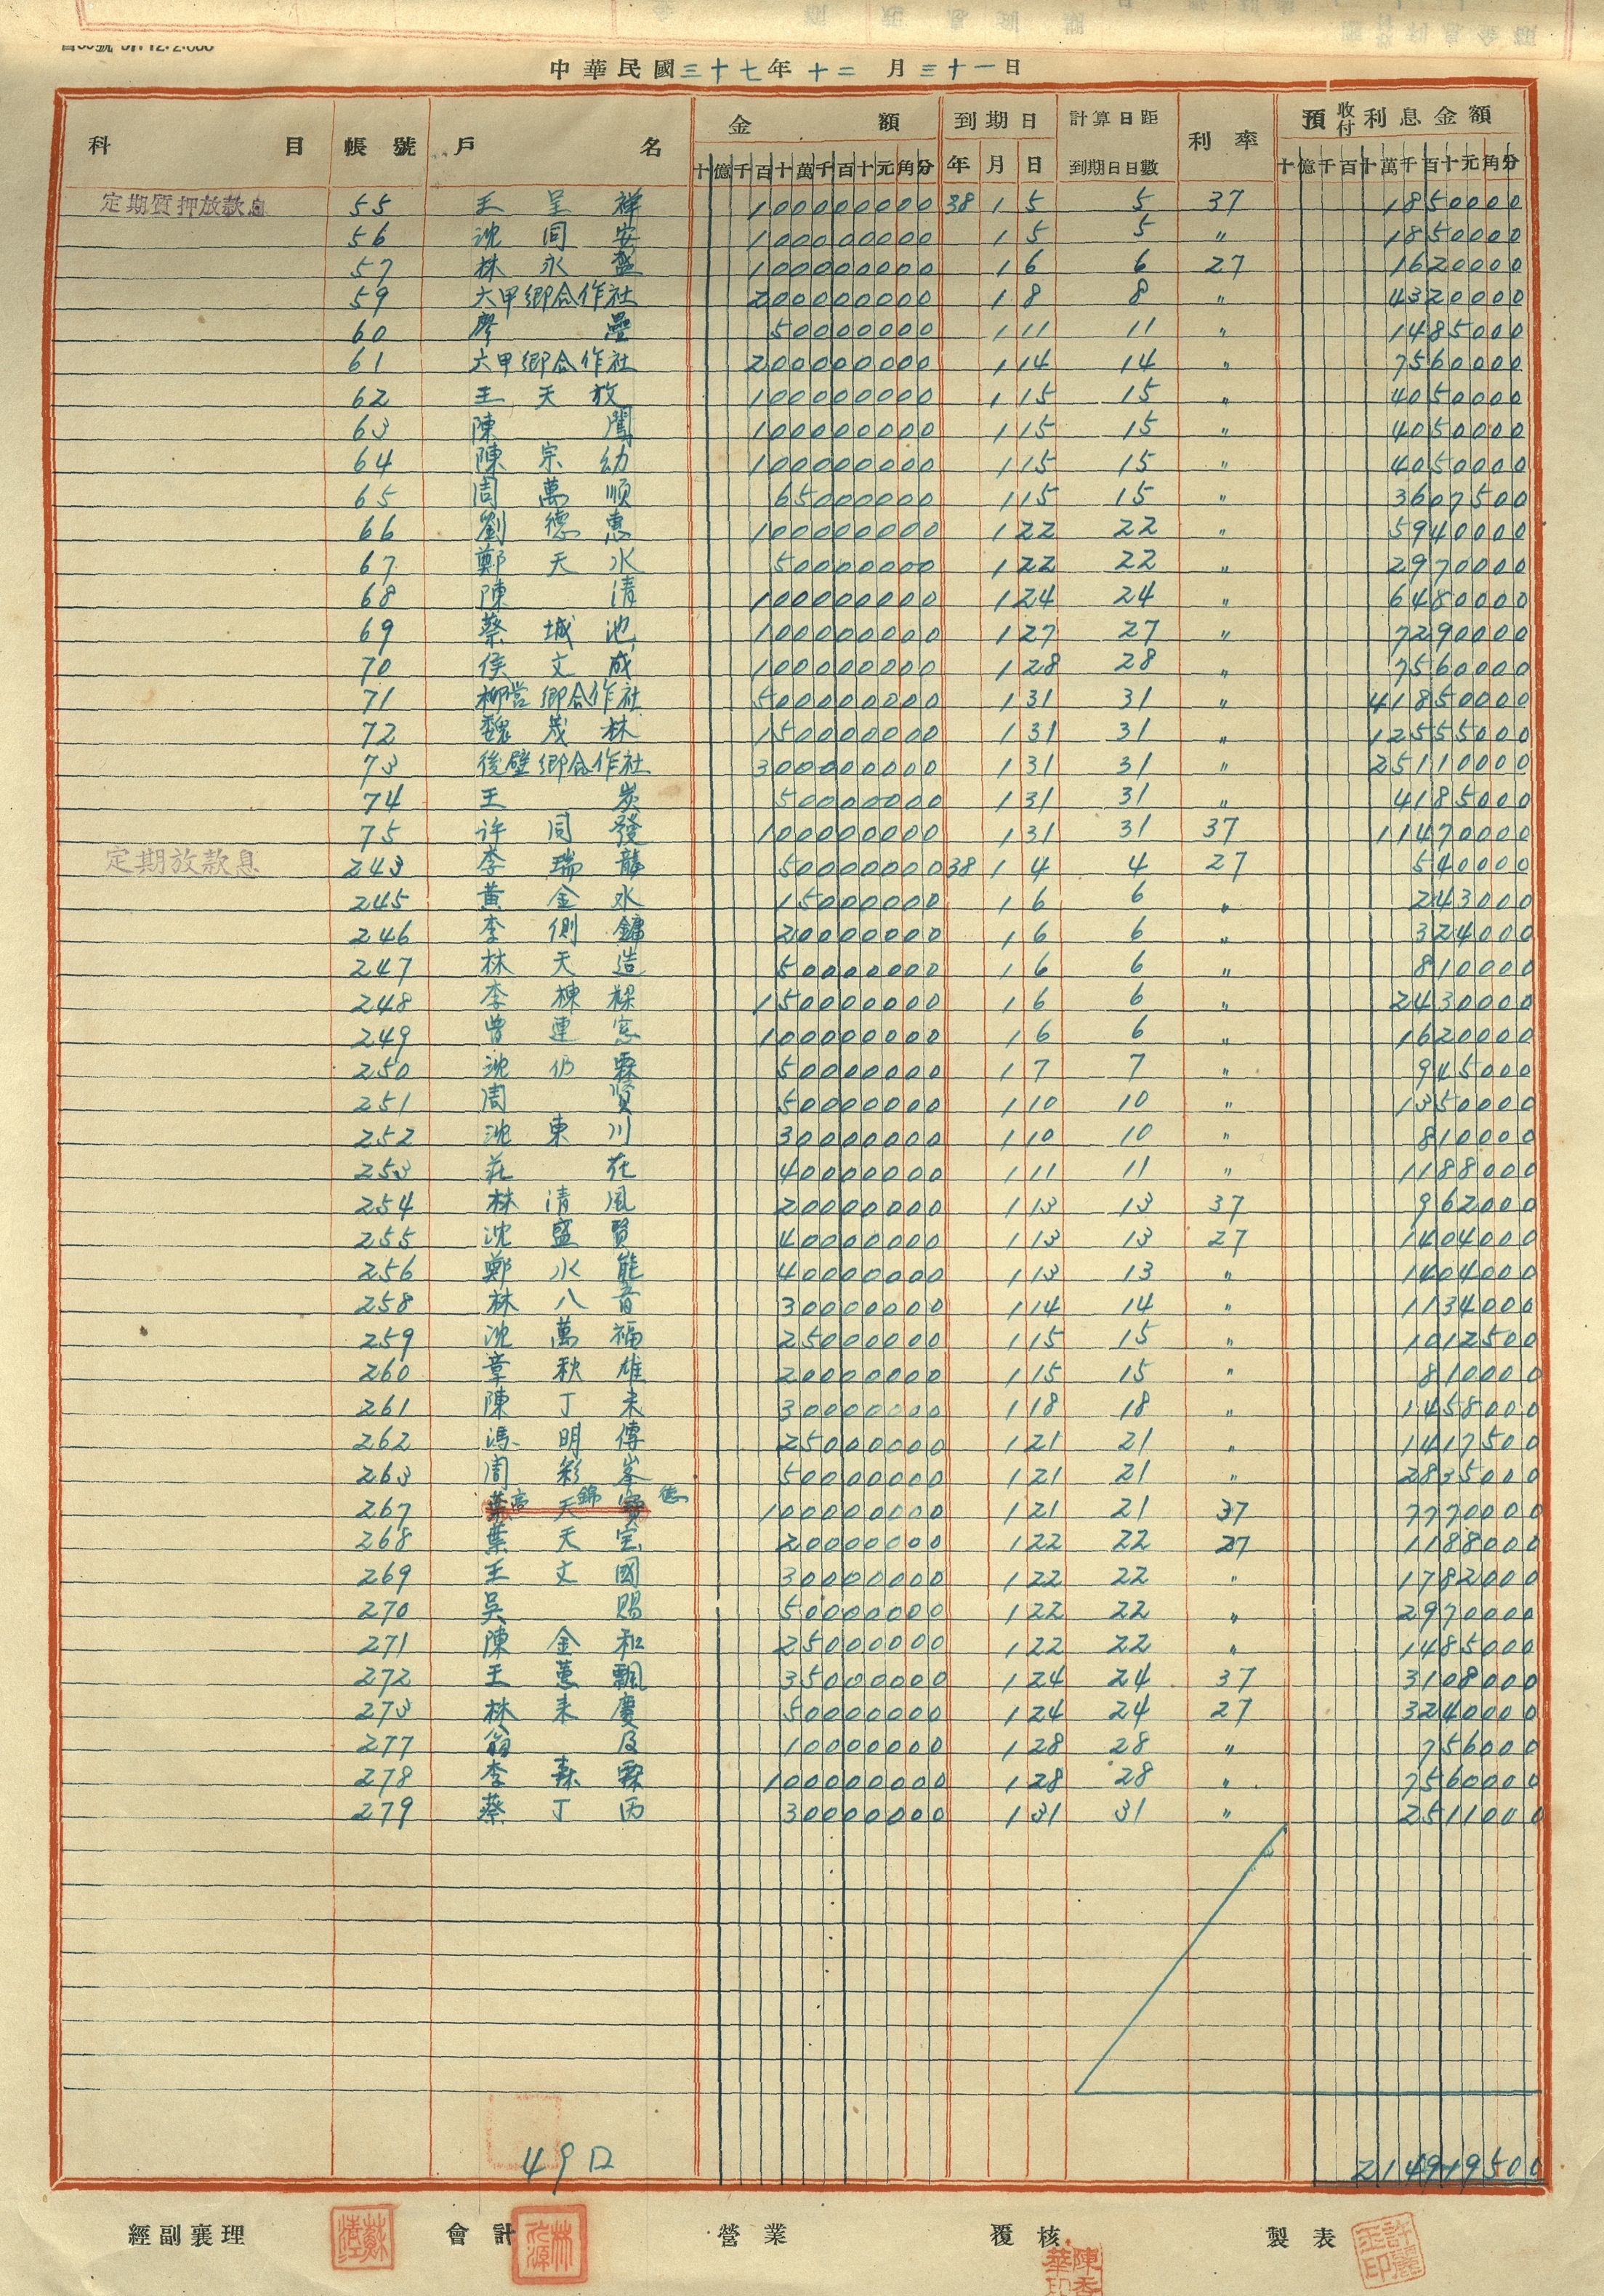 中華民國三十七年十二月三十一日
科目 帳號 戶名 金額 到期日 計算日距到期日日數 利率 預收付利息金額
十億千百十萬千百十元角分 年 月 日 十億千百十萬千百十元角分
定期質押放款息 55 王呈祥 1000000000 38 1 5 5 37 18500000
56 沈同安 1000000000 1 5 5 〃 18500000
57 林永盛 1000000000 1 6 6 27 16200000
59 六甲鄉合作社 2000000000 1 8 8 〃 43200000
60 廖疊 500000000 1 11 11 〃 14850000
61 六甲鄉合作社 2000000000 1 14 14 〃 75600000
62 王天放 1000000000 1 15 15 〃 40500000
63 陳 1000000000 1 15 15 〃 40500000
64 陳宗幼 1000000000 1 15 15 〃 40500000
65 周萬順 650000000 1 15 15 〃 3607500
66 劉德惠 1000000000 1 22 22 〃 5940000
67 鄭天水 500000000 1 22 22 〃 2970000
68 陳清 1000000000 1 24 24 〃 6480000
69 蔡城池 1000000000 1 27 27 〃 7290000
70 侯文成 1000000000 1 28 28 〃 7560000
71 柳営鄉合作社 5000000000 1 31 31 〃 41850000
72 魏茂林 1500000000 1 31 31 〃 12555000
73 後壁鄉合作社 3000000000 1 31 31 〃 25110000
74 王炭 500000000 1 31 31 〃 4185000
75 许同發 1000000000 1 31 31 37 11470000
定期放款息 243 李瑞龍 500000000 38 1 4 4 27 540000
245 黃金水 150000000 1 6 6 〃 243000
246 李側鏞 200000000 1 6 6 〃 324000
247 林天造 500000000 1 6 6 〃 810000
248 李棟樑 1500000000 1 6 6 〃 2430000
249 曾連 1000000000 1 6 6 〃 1620000
250 沈仍霖 500000000 1 7 7 〃 945000
251 周賢 500000000 1 10 10 〃 1350000
252 沈東川 300000000 1 10 10 〃 810000
253 莊花 400000000 1 11 11 〃 1188000
254 林清風 200000000 1 13 13 37 962000
255 沈盛賢 400000000 1 13 13 27 1404000
256 鄭水能 400000000 1 13 13 〃 1404000
258 林八音 300000000 1 14 14 〃 1134000
259 沈萬福 250000000 1 15 15 〃 1012500
260 章秋雄 200000000 1 15 15 〃 810000
261 陳丁未 300000000 1 18 18 〃 1458000
262 馮明傳 250000000 1 21 21 〃 1417500
263 周彩峯 500000000 1 21 21 〃 2835000
267 高錦德 1000000000 1 21 21 37 7770000
268 葉天宝 200000000 1 22 22 27 1188000
269 王文國 300000000 1 22 22 〃 1782000
270 吳賜 500000000 1 22 22 〃 2970000
271 陳金和 250000000 1 22 22 〃 1485000
272 王蔥飄 350000000 1 24 24 37 3108000
273 林來慶 500000000 1 24 24 27 3240000
277 翁及 100000000 1 28 28 〃 756000
278 李森霖 1000000000 1 28 28 〃 7560000
279 蔡丁丙 300000000 1 31 31 〃 2511000
49口 214919500
經副襄理 會計 營業 覆核 製表